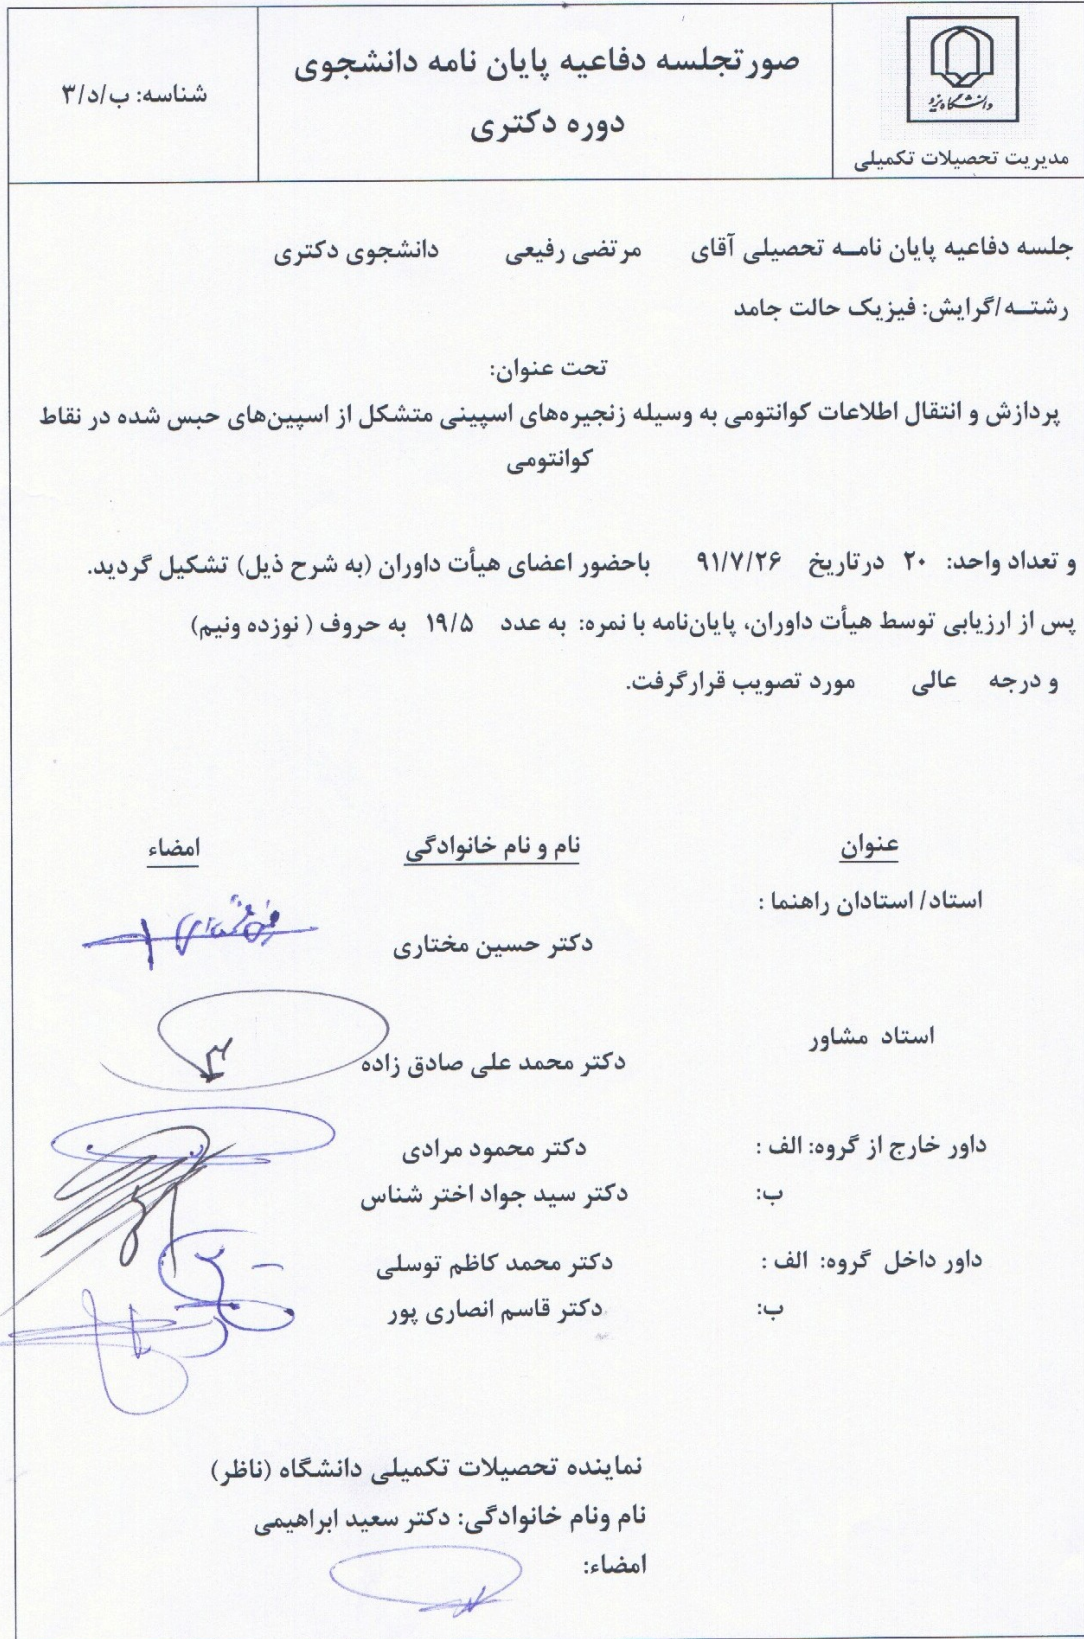 دانشگاه یزد
مدیریت تحصیلات تکمیلی
صورتجلسه دفاعیه پایان نامه دانشجوی
دوره دکتری
شناسه: ب/د/۳
جلسه دفاعیه پایان نامــه تحصیلی آقای مرتضی رفیعی دانشجوی دکتری
رشتــه/گرایش: فیزیک حالت جامد
تحت عنوان:
پردازش و انتقال اطلاعات کوانتومی به وسیله زنجیره‌های اسپینی متشکل از اسپین‌های حبس شده در نقاط
کوانتومی
و تعداد واحد: ۲۰ درتاریخ ۹۱/۷/۲۶ باحضور اعضای هیأت داوران (به شرح ذیل) تشکیل گردید.
پس از ارزیابی توسط هیأت داوران، پایان‌نامه با نمره: به عدد ۱۹/۵ به حروف ( نوزده ونیم)
و درجه عالی مورد تصویب قرارگرفت.
عنوان نام و نام خانوادگی امضاء
استاد/ استادان راهنما :
دکتر حسین مختاری
استاد مشاور
دکتر محمد علی صادق زاده
داور خارج از گروه: الف : دکتر محمود مرادی
ب: دکتر سید جواد اختر شناس
داور داخل گروه: الف : دکتر محمد کاظم توسلی
ب: دکتر قاسم انصاری پور
نماینده تحصیلات تکمیلی دانشگاه (ناظر)
نام ونام خانوادگی: دکتر سعید ابراهیمی
امضاء: